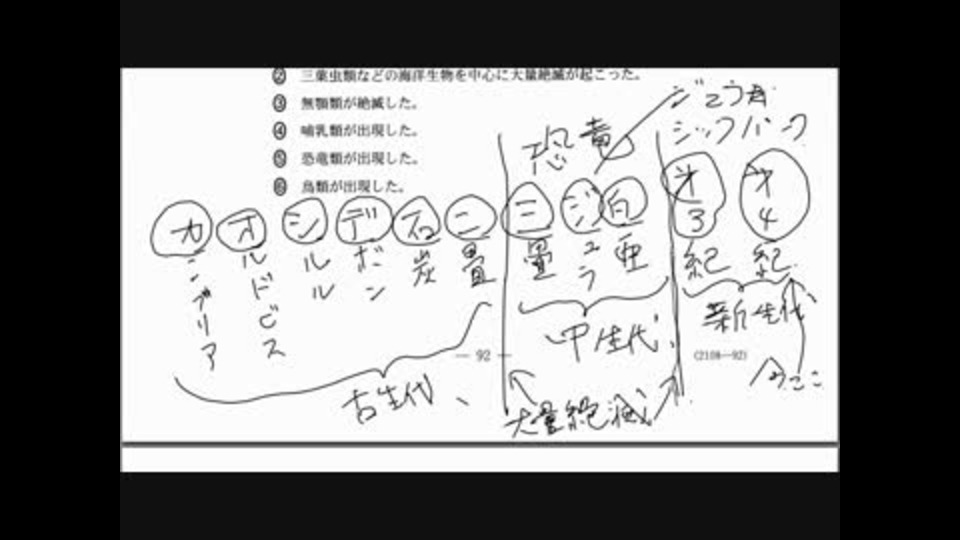 ② 三葉虫類などの海洋生物を中心に大量絶滅が起こった。
③ 無顎類が絶滅した。
④ 哺乳類が出現した。
⑤ 恐竜類が出現した。
⑥ 鳥類が出現した。
恐竜
シツパク
カンブリア
オルドビス
シルル
デボン
石炭
二畳
三畳
ジュラ
白亜
第3紀
第4紀
古生代、
中生代、
新生代
大量絶滅
今ここ
— 92 —
(2108—92)